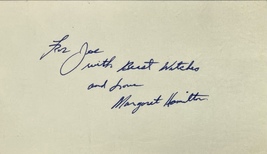 For Joe
with Best Witches
and Love
Margaret Hamilton